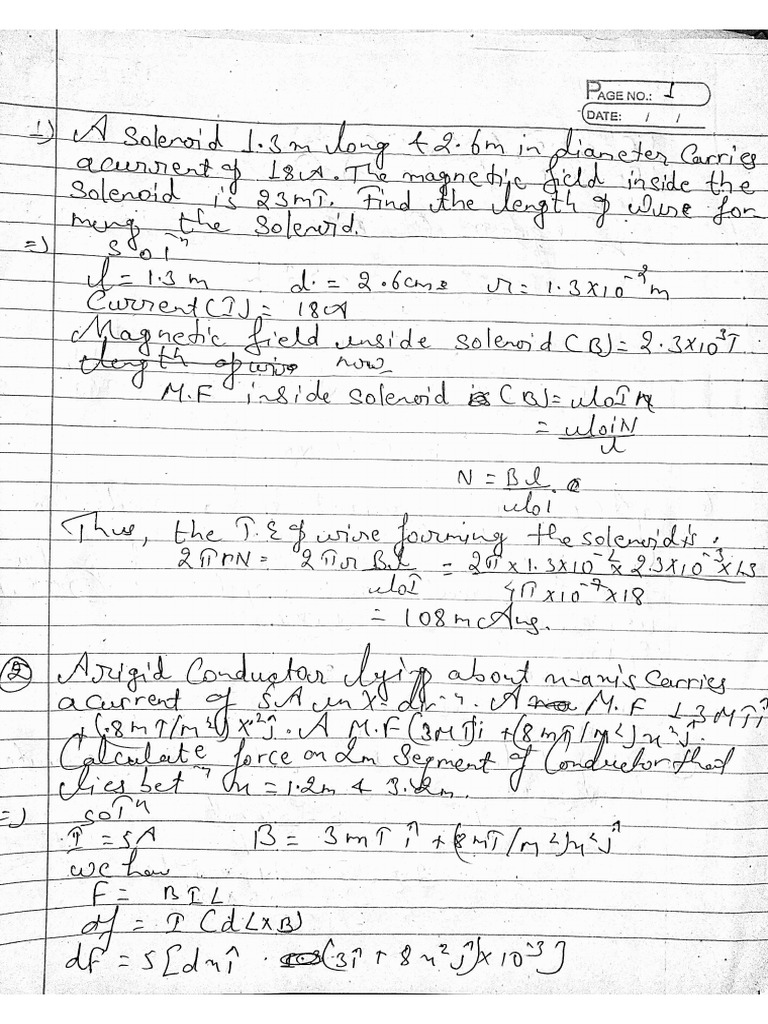 PAGE NO.: 1
DATE: / /
1) A Solenoid 1.3m long & 2.6m in diameter Carries
a current of 18A. The magnetic field inside the
Solenoid is 23mT. Find the length of wire for
ming the Solenoid.
=) Solⁿ
l = 1.3 m d = 2.6cm r = 1.3×10⁻²m
Current (I) = 18A
Magnetic field inside solenoid (B) = 2.3×10⁻³T
now
M.F inside solenoid (B) = μoIn
= μoiN/l
N = Bl/μoI
Thus, the T. of wire forming the solenoid is.
2πrN = 2πr Bl/μoI = 2π×1.3×10⁻²×23×10⁻³×1.3/4π×10⁻⁷×18
= 108m Ans.
② A rigid Conductor lying about x-axis carries
a current of 5A in x- dirⁿ. A M.F 3MTî
+(.8mT/m²)x²ĵ. A M.F (3MT)i +(8mT/m²)x²ĵ.
Calculate force on 2m Segment of Conductor that
lies betⁿ x = 1.2m & 3.2m.
=) Solⁿ
I = 5A B = 3mTî +(8mT/m²)x²ĵ
we have
F = BIL
df = I (dL×B)
dF = 5[dxî (3î + 8x²ĵ)×10⁻³]